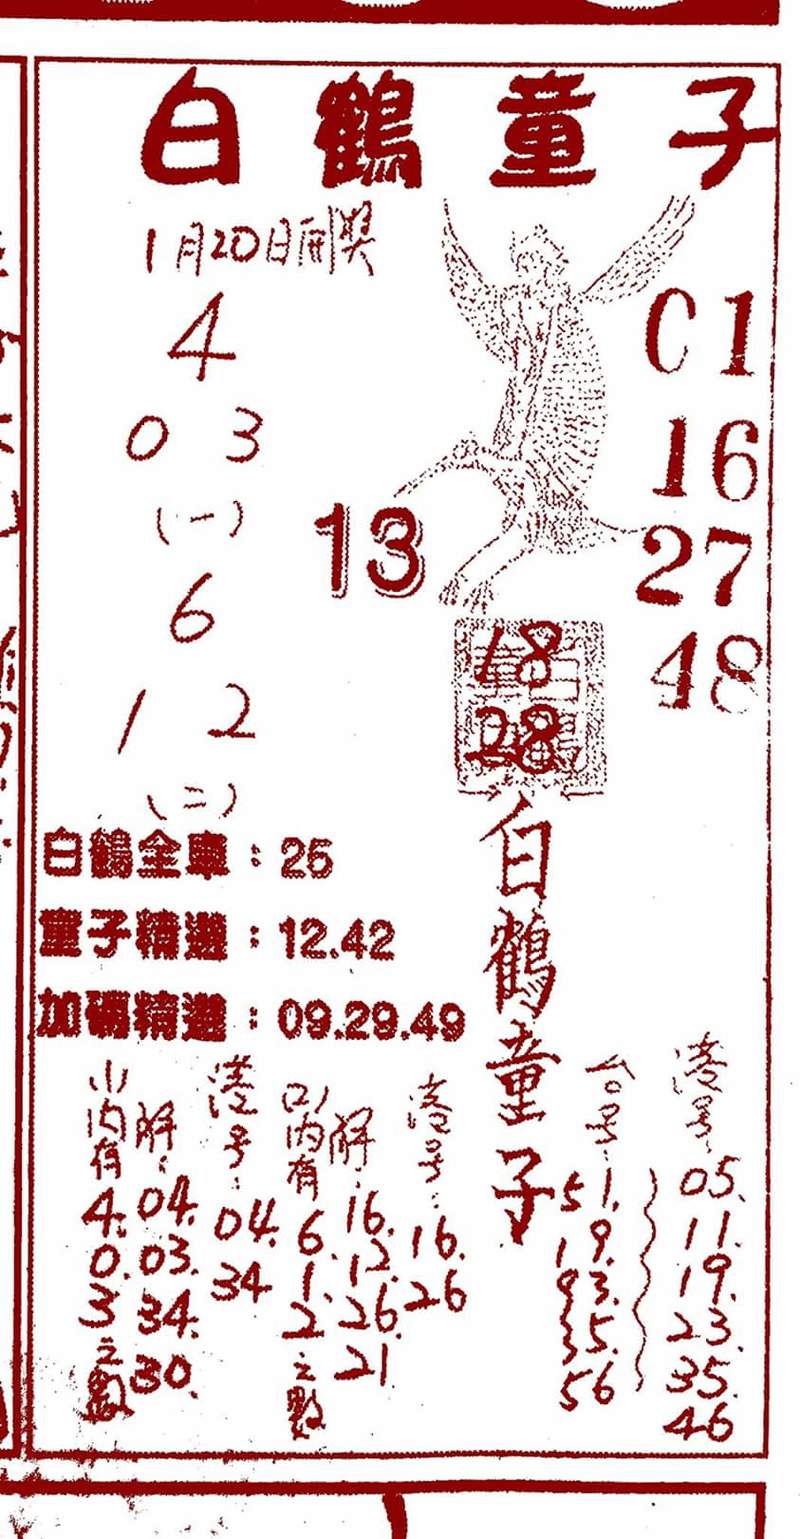 白鶴童子
1月20日開獎
4
0 3
(一)
6
1 2
(二)
13
01
16
27
48
18
28
白鶴童子
白鶴全車：25
童子精選：12.42
加碼精選：09.29.49
(1)內有4.0.3之數
解：04.03.34.30.
港号：04.34
(2)內有6.1.2之數
解：16.12.26.21
港号：16.26
台号：
51.
19.
93.
35.
56
港号：
05.
11.
19.
23.
35.
46